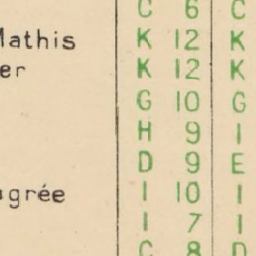 C 6 C
Mathis K 12 K
er K 12 K
G 10 G
H 9 I
D 9 E
grée I 10 I
I 7 I
C 8 D